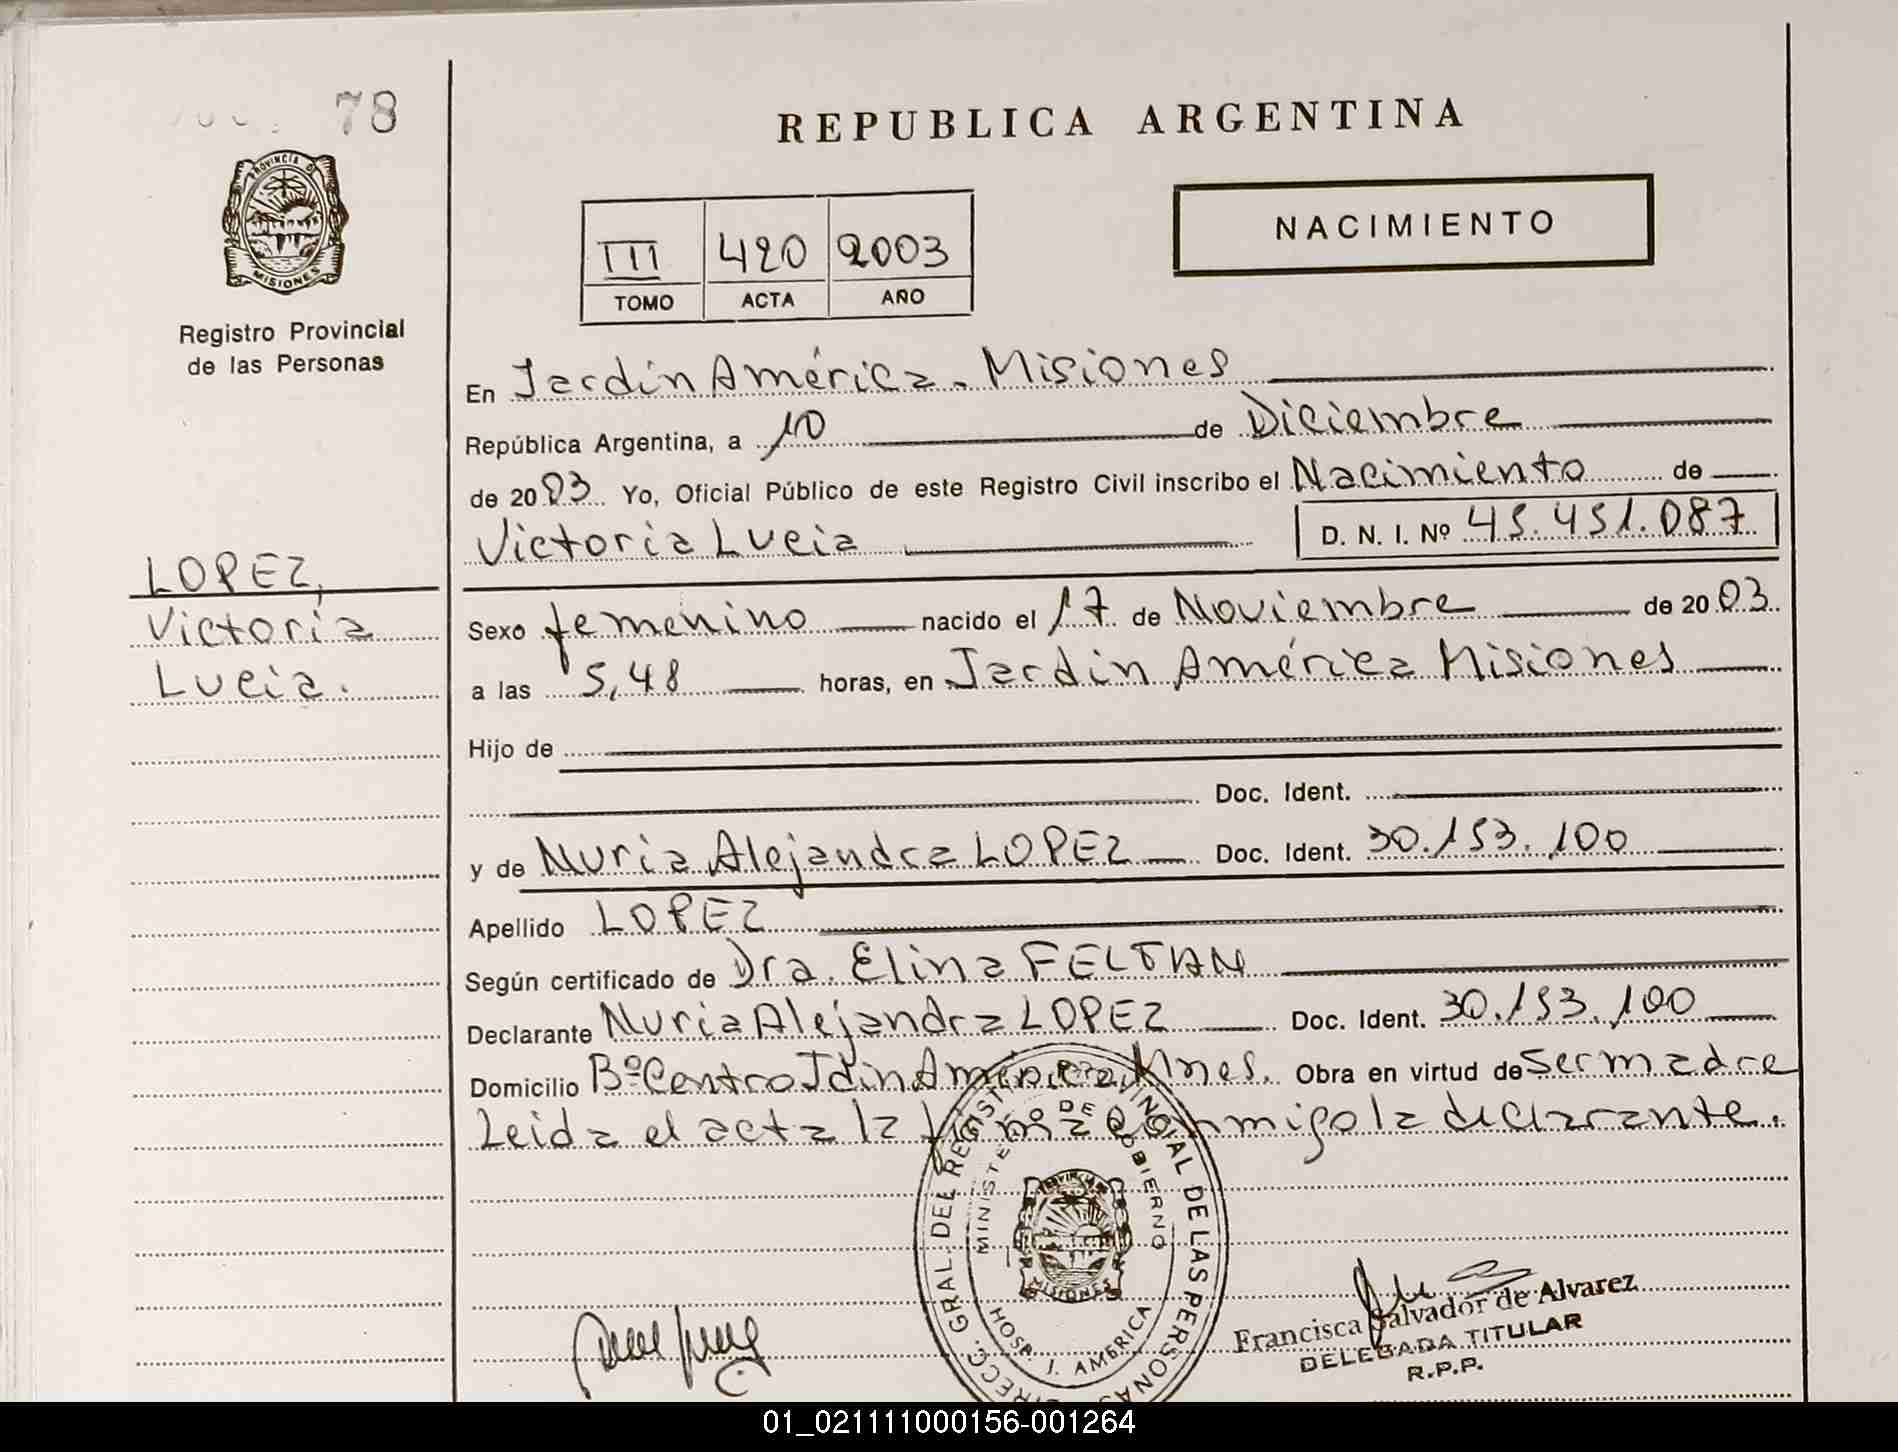 78
PROVINCIA DE
MISIONES
Registro Provincial
de las Personas
REPUBLICA ARGENTINA
III 420 2003
TOMO ACTA AÑO
NACIMIENTO
En Jardín América. Misiones
República Argentina, a 10 de Diciembre
de 2003 Yo, Oficial Público de este Registro Civil inscribo el Nacimiento de
Victoria Lucia D. N. I. Nº 45.451.087
LOPEZ,
Victoria
Lucia.
Sexo femenino nacido el 17 de Noviembre de 2003
a las 5,48 horas, en Jardín América Misiones
Hijo de
Doc. Ident.
y de Nuria Alejandra LOPEZ Doc. Ident. 30.153.100
Apellido LOPEZ
Según certificado de Dra. Elina FELTAN
Declarante Nuria Alejandra LOPEZ Doc. Ident. 30.153.100
Domicilio Bº Centro Jdin América, Mnes. Obra en virtud de ser madre
Leida el acta la firma conmigo la declarante.
DIRECC. GRAL. DEL REGISTRO PROVINCIAL DE LAS PERSONAS
MINISTERIO DE GOBIERNO
MISIONES
HOSP. J. AMERICA
Francisca Salvador de Alvarez
DELEGADA TITULAR
R.P.P.
01_021111000156-001264